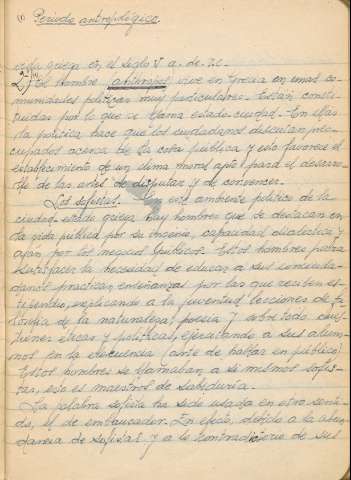 (1) Periodo antropológico.
vida griega en el siglo V a. de J.C.
El hombre (anthropos) vive en Grecia en unas co-
munidades políticas muy particulares. Están consti-
tuidas por lo que se llama estado-ciudad. En ellas
la política hace que los ciudadanos discutan preo-
cupados acerca de la cosa pública y esto favorece el
establecimiento de un clima moral apto para el desarro-
llo de las artes de disputar y de convencer.
Los sofistas. ese ambiente político de la
ciudad-estado griega hay hombres que se destacan en
la vida pública por su ingenio, capacidad dialéctica y
afán por los negocios públicos. Estos hombres para
satisfacer la necesidad de educar a sus conciuda-
danos practican enseñanzas por las que reciben es-
tipendio, explicando a la juventud lecciones de fi-
losofía de la naturaleza, poesía y sobre todo cues-
tiones éticas y políticas, ejercitando a sus alum-
nos en la elocuencia (arte de hablar en público).
Estos hombres se llamaban a sí mismos sofis-
tas, esto es maestros de sabiduría.
La palabra sofista ha sido usada en otro senti-
do, el de embaucador. En efecto, debido a la abun-
dancia de sofistas y a lo contradictorio de sus